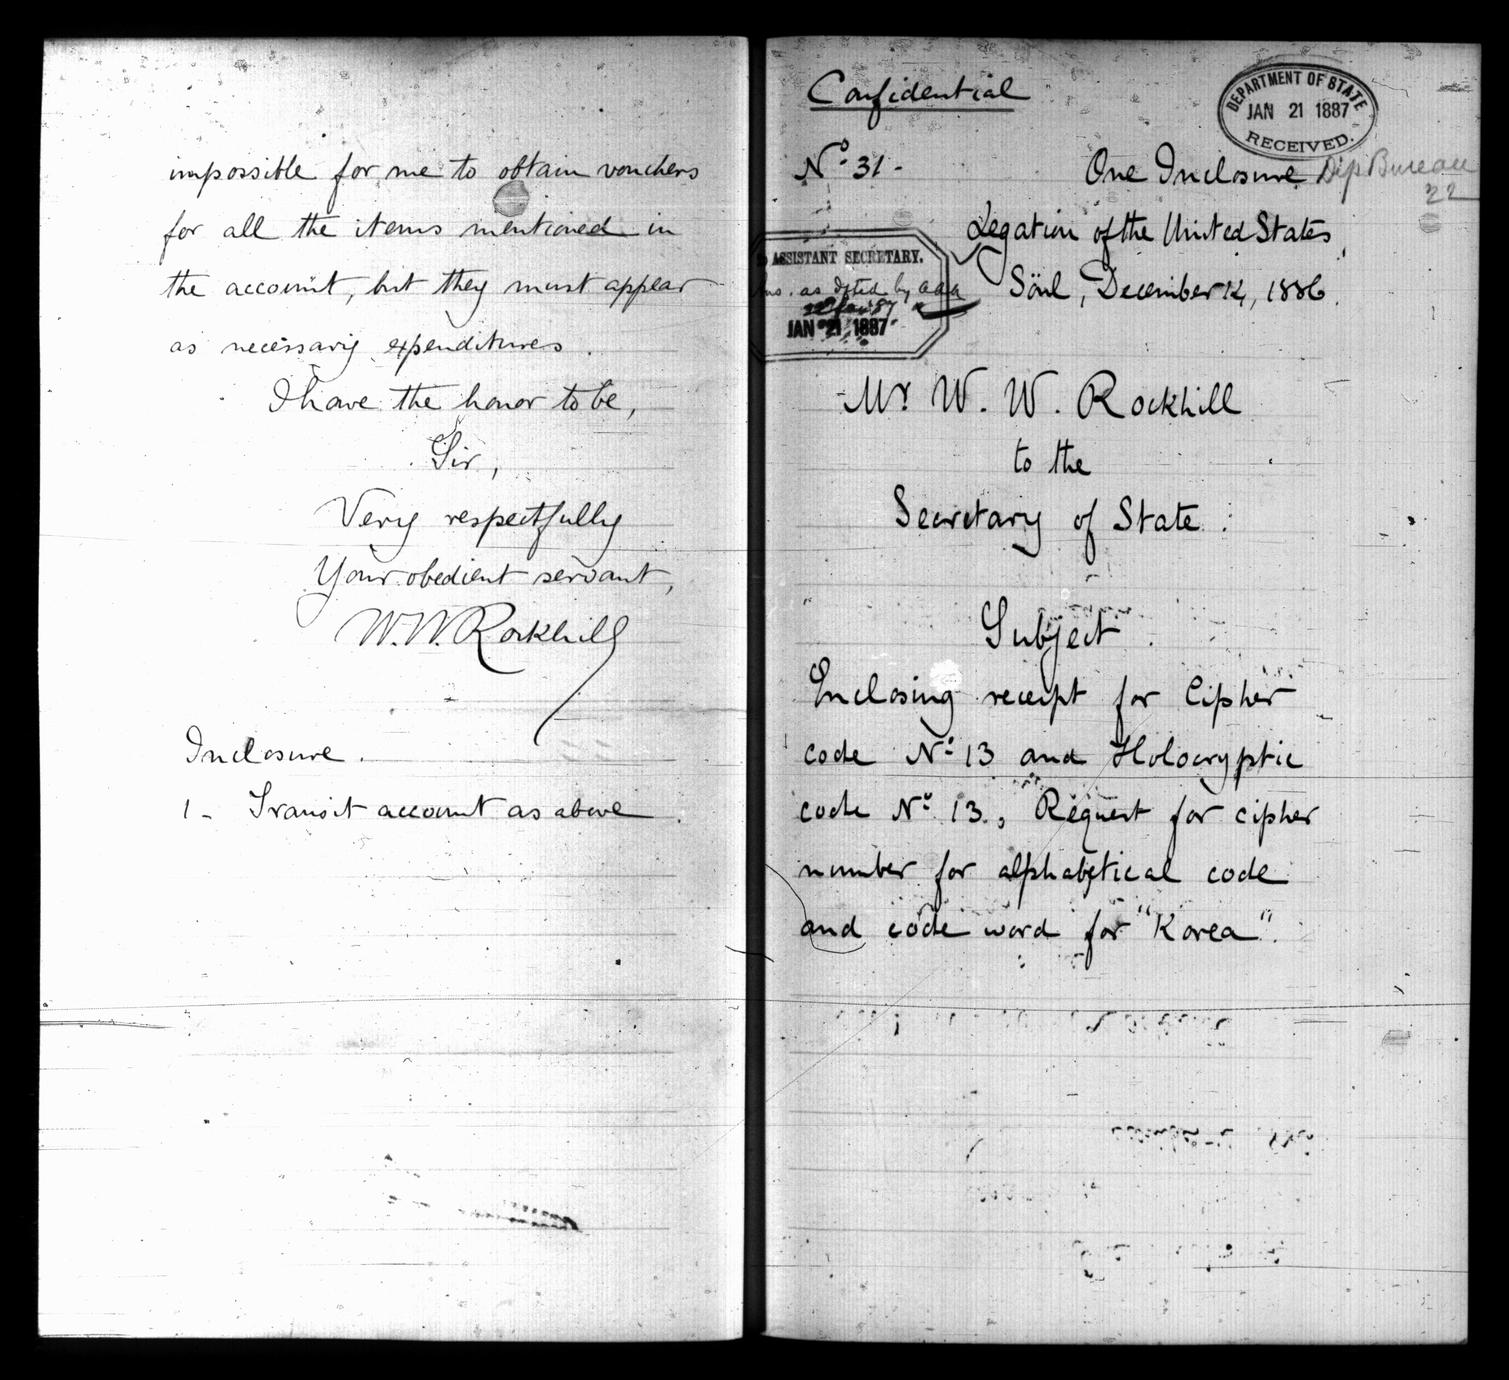 impossible for me to obtain vouchers
for all the items mentioned in
the account, but they must appear
as necessary expenditures.
I have the honor to be,
Sir,
Very respectfully
Your obedient servant,
W. W. Rockhill
Inclosure.
1 - Transit account as above.
Confidential
DEPARTMENT OF STATE
JAN 21 1887
RECEIVED.
No. 31 -
One Inclosure
Dip Bureau
22
Legation of the United States,
ASSISTANT SECRETARY.
as by aaa
JAN 21 1887
Söul, December 14, 1886.
Mr. W. W. Rockhill
to the
Secretary of State.
Subject.
Enclosing receipt for Cipher
code No. 13 and Holocryptic
code No. 13, Request for cipher
number for alphabetical code
and code word for "Korea".